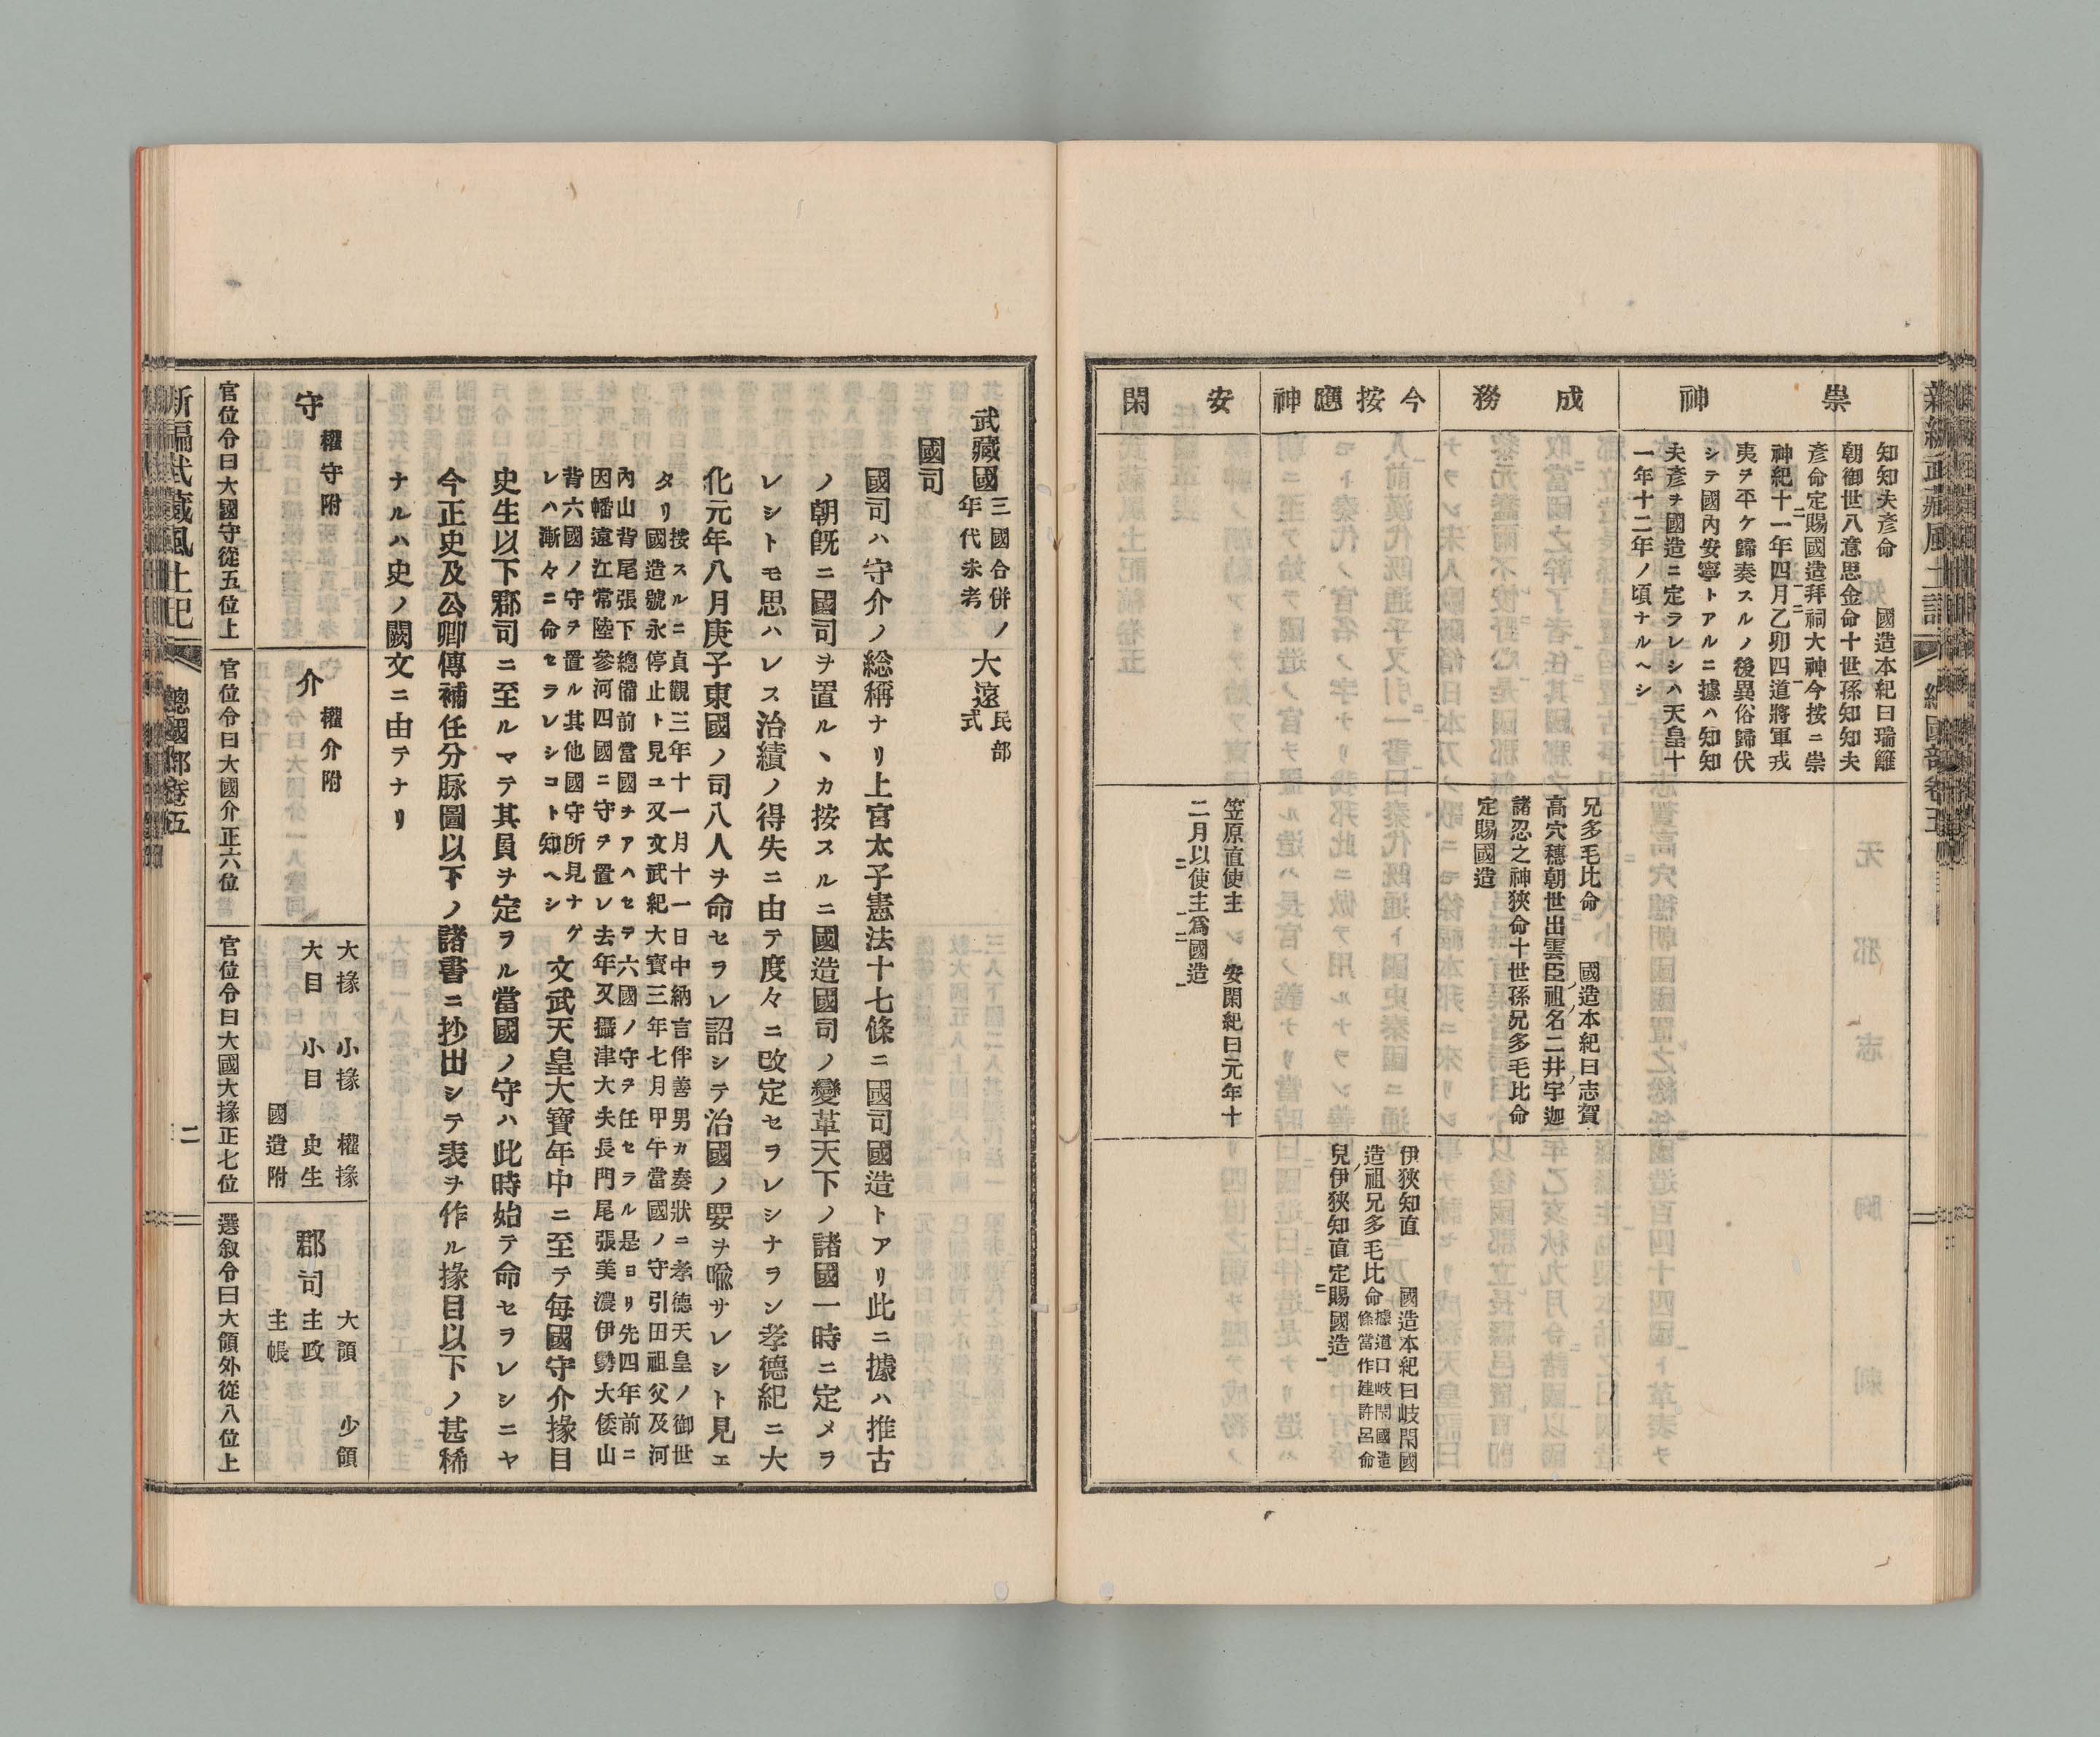 新編武藏風土記
總國部卷五
崇神
知知夫彥命 國造本紀曰瑞籬
朝御世八意思金命十世孫知知夫
彥命定賜國造拜祠大神今按ニ崇
神紀十一年四月乙卯四道將軍戎
夷ヲ平ケ歸奏スルノ後異俗歸伏
シテ國內安寧トアルニ據ハ知知
夫彥ヲ國造ニ定ラレシハ天皇十
一年十二年ノ頃ナルヘシ
成務
兄多毛比命 國造本紀曰志賀
高穴穗朝世出雲臣祖名二井宇迦
諸忍之神狹命十世孫兄多毛比命
定賜國造
今按應神
伊狹知直 國造本紀曰岐閇國
造祖兄多毛比命據道口岐閇國造
條當作建許呂命
兒伊狹知直定賜國造
安閑
笠原直使主 安閑紀曰元年十
二月以使主爲國造
武藏國三國合併ノ
年代未考大遠民部
式
國司
國司ハ守介ノ総稱ナリ上宮太子憲法十七條ニ國司國造トアリ此ニ據ハ推古
ノ朝旣ニ國司ヲ置ルヽカ按スルニ國造國司ノ變革天下ノ諸國一時ニ定メラ
レシトモ思ハレス治績ノ得失ニ由テ度々ニ改定セラレシナラン孝德紀ニ大
化元年八月庚子東國ノ司八人ヲ命セラレ詔シテ治國ノ要ヲ喩サレシト見エ
タリ按スルニ貞觀三年十一月十一日中納言伴善男カ奏狀ニ孝德天皇ノ御世
國造號永停止ト見ユ又文武紀大寶三年七月甲午當國ノ守引田祖父及河
內山背尾張下總備前當國ヲアハセテ六國ノ守ヲ任セラル是ヨリ先四年前ニ
因幡遠江常陸參河四國ニ守ヲ置レ去年又攝津大夫長門尾張美濃伊勢大倭山
背六國ノ守ヲ置ル其他國守所見ナ
レハ漸々ニ命セラレシコト知ヘシグ文武天皇大寶年中ニ至テ每國守介掾目
史生以下郡司ニ至ルマテ其員ヲ定ラル當國ノ守ハ此時始テ命セラレシニヤ
今正史及公卿傳補任分脉圖以下ノ諸書ニ抄出シテ表ヲ作ル掾目以下ノ甚稀
ナルハ史ノ闕文ニ由テナリ
守 權守附
介 權介附
大掾 小掾 權掾
大目 小目 史生
國造附
郡司 大領 少領
主政
主帳
官位令曰大國守從五位上
官位令曰大國介正六位
官位令曰大國大掾正七位
選叙令曰大領外從八位上
新編武藏風土記
總國部卷五
二